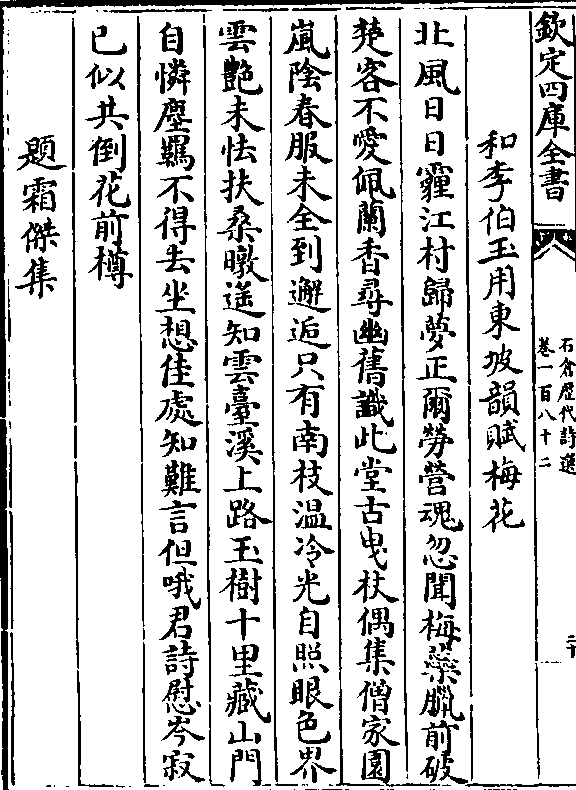 欽定四庫全書
石倉歷代詩選
卷一百八十二
二十
和李伯玉用東坡韻賦梅花
北風日日霾江村歸夢正爾勞營魂忽聞梅蘂臘前破
楚客不愛佩蘭香尋幽舊識此堂古曳杖偶集僧家園
嵐陰春服未全到邂逅只有南枝温冷光自照眼色界
雲艷未怯扶桑暾遥知雲臺溪上路玉樹十里藏山門
自憐塵羈不得去坐想佳處知難言但哦君詩慰岑寂
已似共倒花前樽
題霜傑集